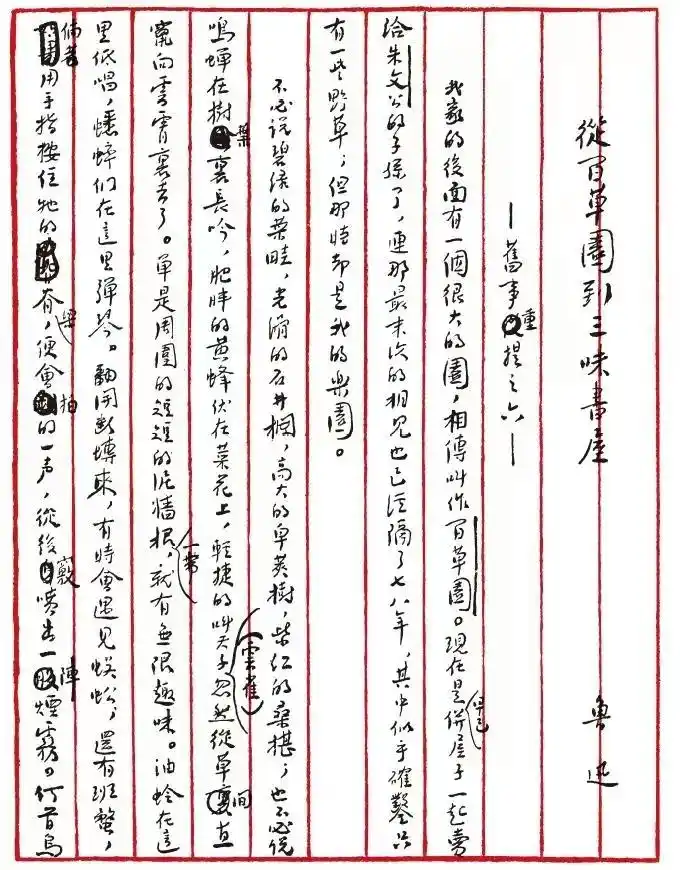 從百草園到三味書屋
魯迅
—舊事重提之六—
我家的後面有一個很大的園,相傳叫作百草園。現在是早已併屋子一起賣
給朱文公的子孫了,連那最末次的相見也已經隔了七八年,其中似乎確鑿只
有一些野草;但那時却是我的樂園。
不必說碧綠的菜畦,光滑的石井欄,高大的皁莢樹,紫紅的桑椹;也不必說
鳴蟬在樹葉裏長吟,肥胖的黃蜂伏在菜花上,輕捷的叫天子(雲雀)忽然從草間直
竄向雲霄裏去了。單是周圍的短短的泥牆根一帶,就有無限趣味。油蛉在這
里低唱,蟋蟀们在這里彈琴。翻開斷塼來,有時會遇見蜈蚣;還有斑蝥,
倘若用手指按住牠的脊梁,便會拍的一声,從後竅噴出一陣煙霧。何首烏